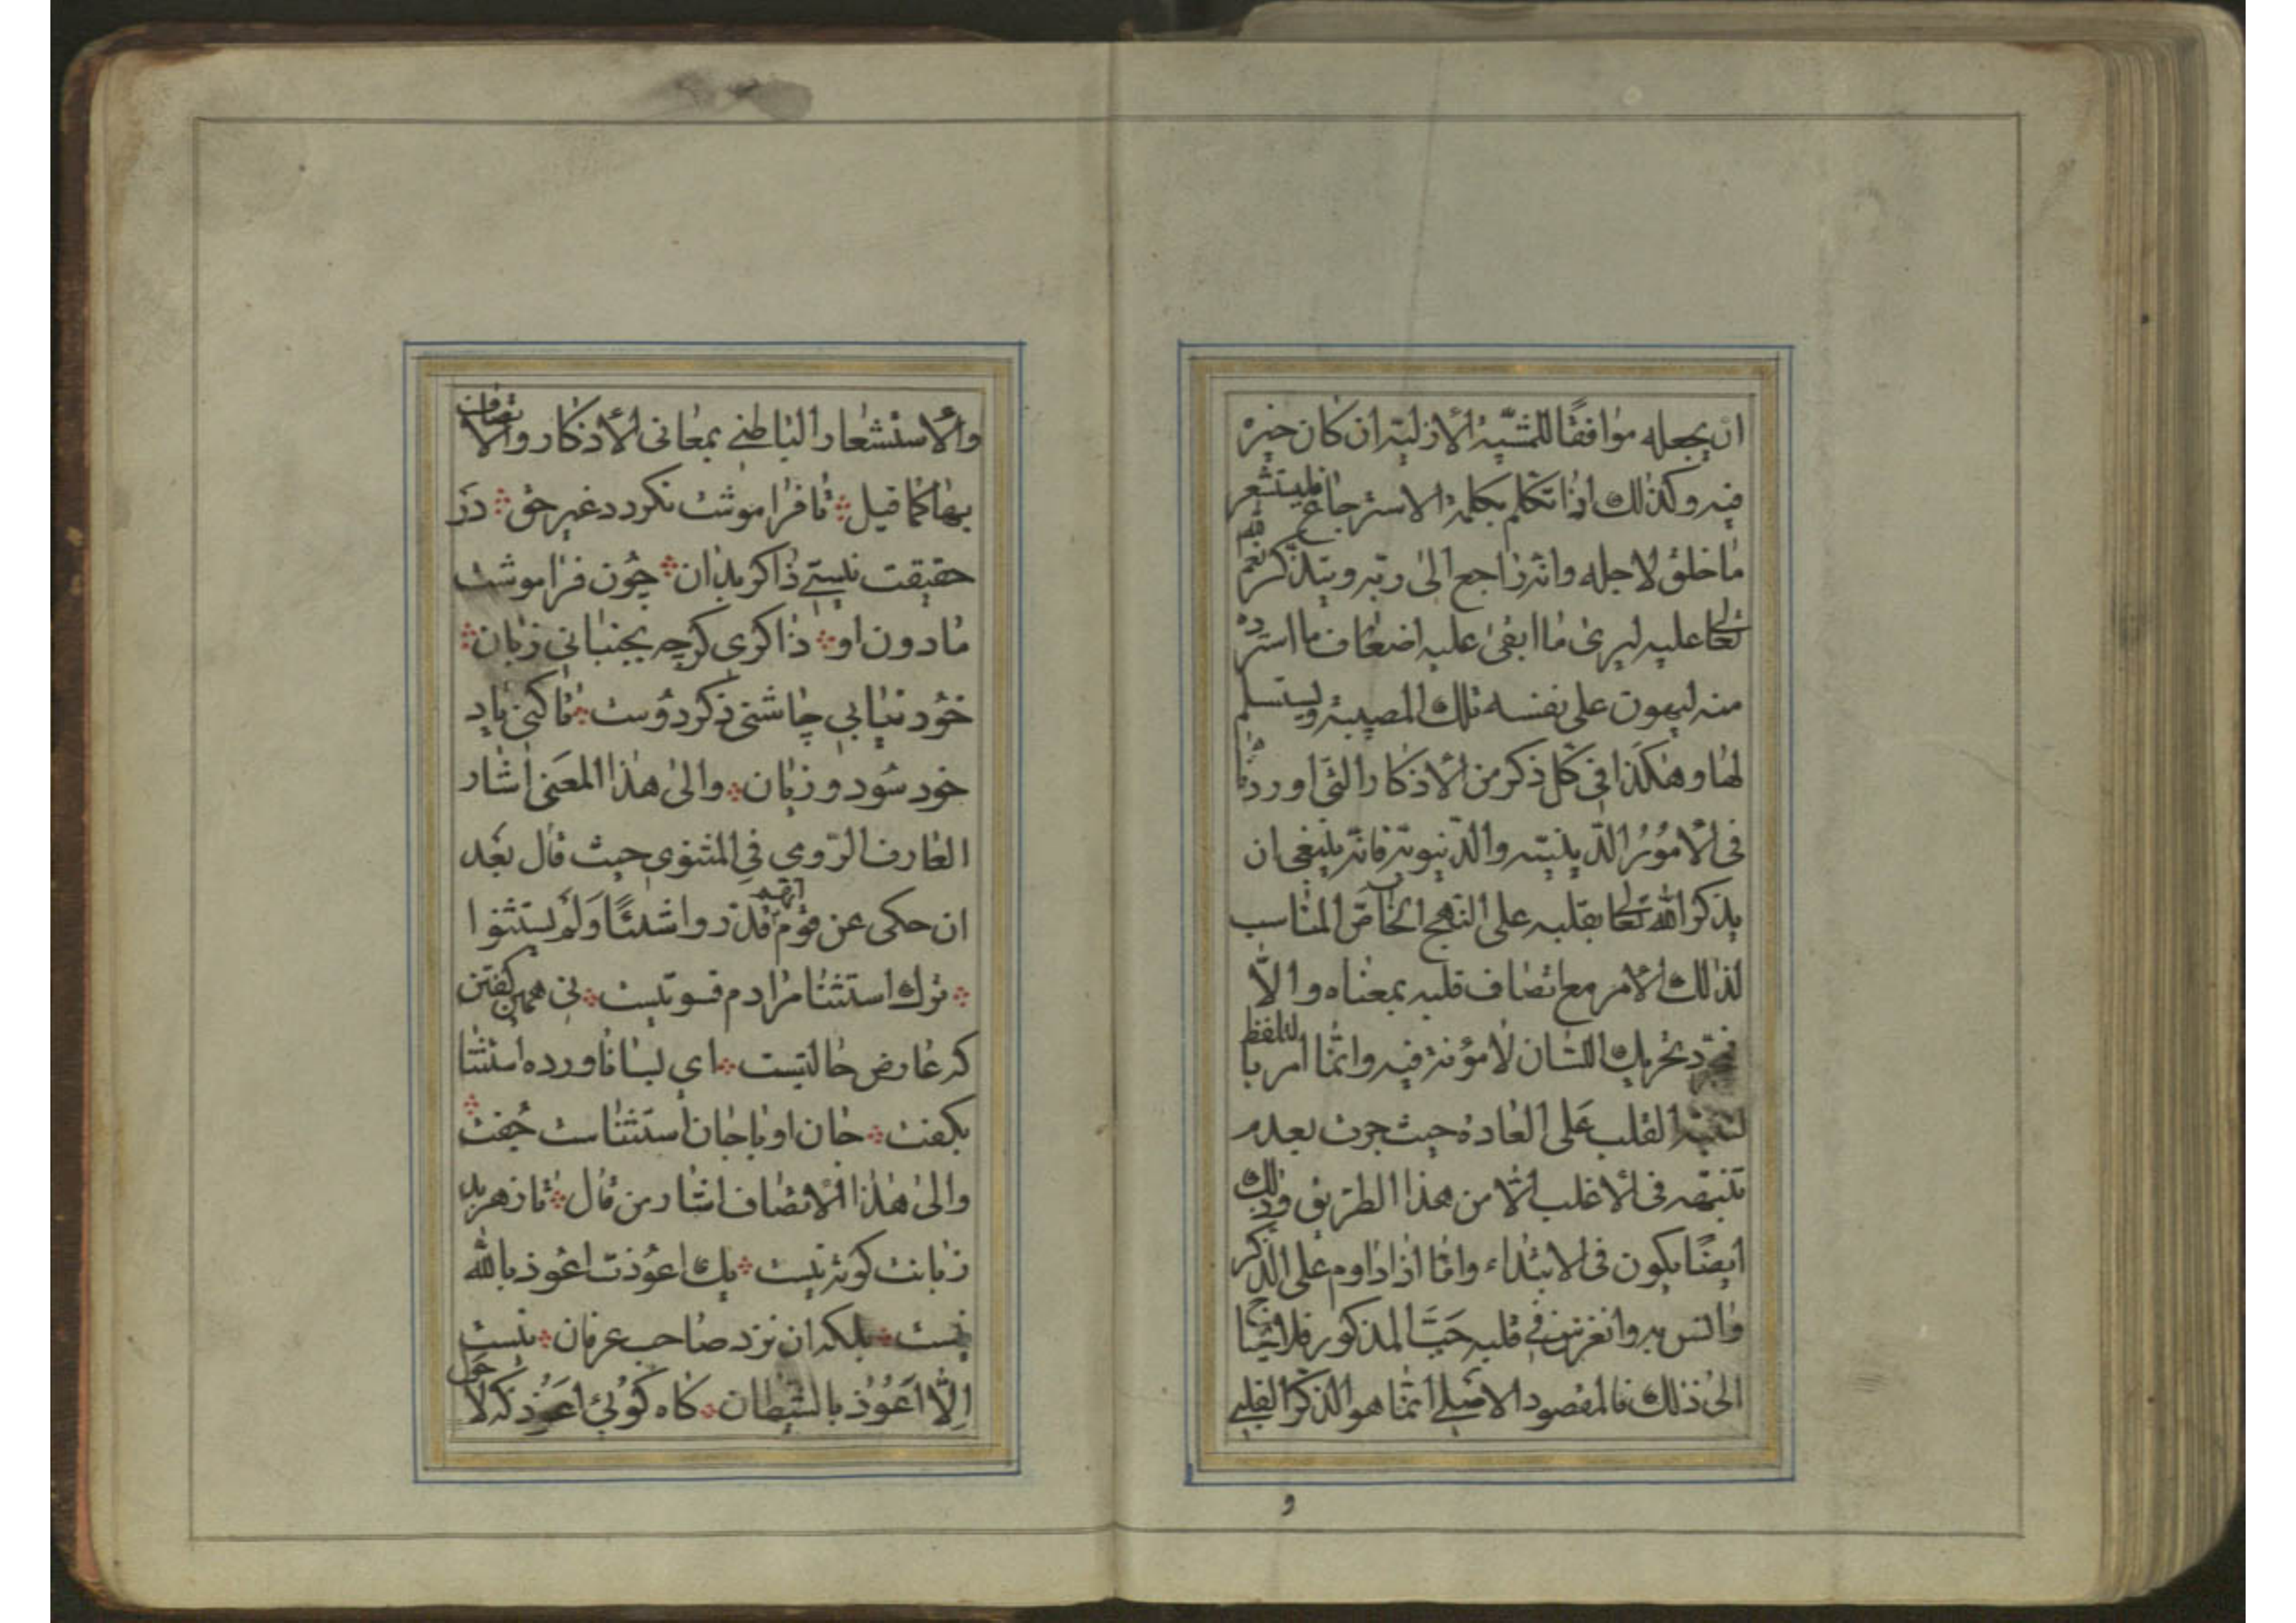 ان يجعله موافقا للمشيّة الأزلية ان كان خيره
فيه وكذلك اذا تكلم بكلمة الاسترجاع فليستشعر
ما خلق لاجله وانه راجع الى ربّه ويتذكّر نعم الله
تعالى عليه ليرى ما ابقى عليه اضعاف ما استرده
منه ليهون على نفسه تلك المصيبة ويستسلم
لها وهكذا في كل ذكر من الأذكار التي اوردنا
في الأمور الدّينيّة والدّنيويّة فانّه ينبغي ان
يذكر الله تعالى بقلبه على النهج الخاصّ المناسب
لذلك الأمر مع اتصاف قلبه بمعناه والّا
فمجرّد تحريك اللسان لا مؤنة فيه وانّما امر باللفظ
لتنبيه القلب على العادة حيث جرت بعدم
تنبّهه في الأغلب الّا من هذا الطريق وذلك
ايضًا يكون في الابتداء وامّا اذا داوم على الذّكر
وانس به وانغرس في قلبه حبّ المذكور فلا يحتاج
الى ذلك فالمقصود الاصلي انّما هو الذّكر القلبي
و
والأستشعار الباطني بمعاني الأذكار والاتصاف
بها كما قيل تا فراموشت نكردد غير حق در
حقيقت نيستي ذاكر بدان چون فراموشت
مادون او ذاكرى كرچه بجنباني زبان
خود نيابي چاشنى ذكر دوست تا كنى ياد
خود سود و زيان والى هذا المعنى اشار
العارف الرّومي في المثنوي حيث قال بعد
ان حكى عن قوم انّهم قدّروا شيئًا ولم يستثنوا
ترك استثنا مرادم قسوتيست نى همين كفتن
كه عارض حالتيست اي بسا ناورده استثنا
بكفت جان او با جان استثناست جفت
والى هذا الأتصاف اشار من قال تا ز هر بد
زبانت كوته نيست يك اعوذت اعوذ بالله
نيست بلكه ان نزد صاحب عرفان نيست
الّا اعوذ بالشيطان كاه كوئي اعوذ كه لا حول